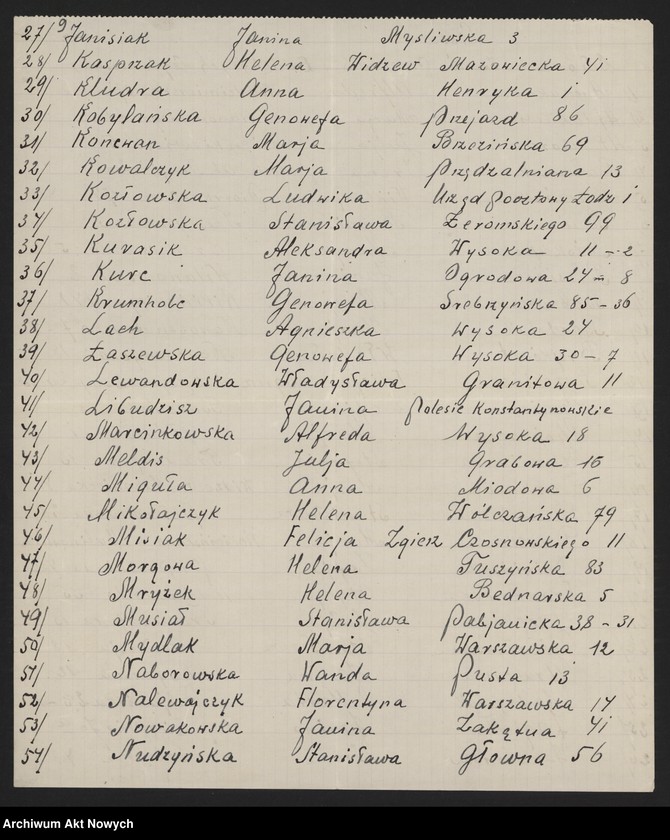 27/ Janisiak Janina Mysliwska 3
28/ Kasprzak Helena Widzew Mazowiecka 41
29/ Kludra Anna Henryka 1
30/ Kobylańska Genowefa Przejazd 86
31/ Koncwan Marja Brzezińska 69
32/ Kowalczyk Marja Przędzalniana 13
33/ Kozłowska Ludwika Urząd pocztony Łodz 1
34/ Kozłowska Stanisława Żeromskiego 99
35/ Kurasik Aleksandra Wysoka 11-2
36/ Kurc Janina Ogrodowa 24 m 8
37/ Krumholc Genowefa Srebrzyńska 85-36
38/ Lach Agnieszka Wysoka 24
39/ Łaszewska Genowefa Wysoka 30-7
40/ Lewandowska Władysława Granitowa 11
41/ Libudzisz Janina Polesie Konstantynowskie
42/ Marcinkowska Alfreda Wysoka 18
43/ Meldis Julja Grabowa
44/ Miguła Anna Miodowa 6
45/ Mikołajczyk Helena Wólczańska 79
46/ Misiak Felicja Zgierz Czosnowskiego 11
47/ Morgowa Helena Tuszyńska 83
48/ Mryżek Helena Bednarska 5
49/ Musiał Stanisława Pabjanicka 38-31
50/ Mydlak Marja Warszawska 12
51/ Naborowska Wanda Pusta 13
52/ Nalewajczyk Florentyna Warszawska 14
53/ Nowakowska Janina Zakątna 41
54/ Nudzyńska Stanisława Głowna 56
Archiwum Akt Nowych